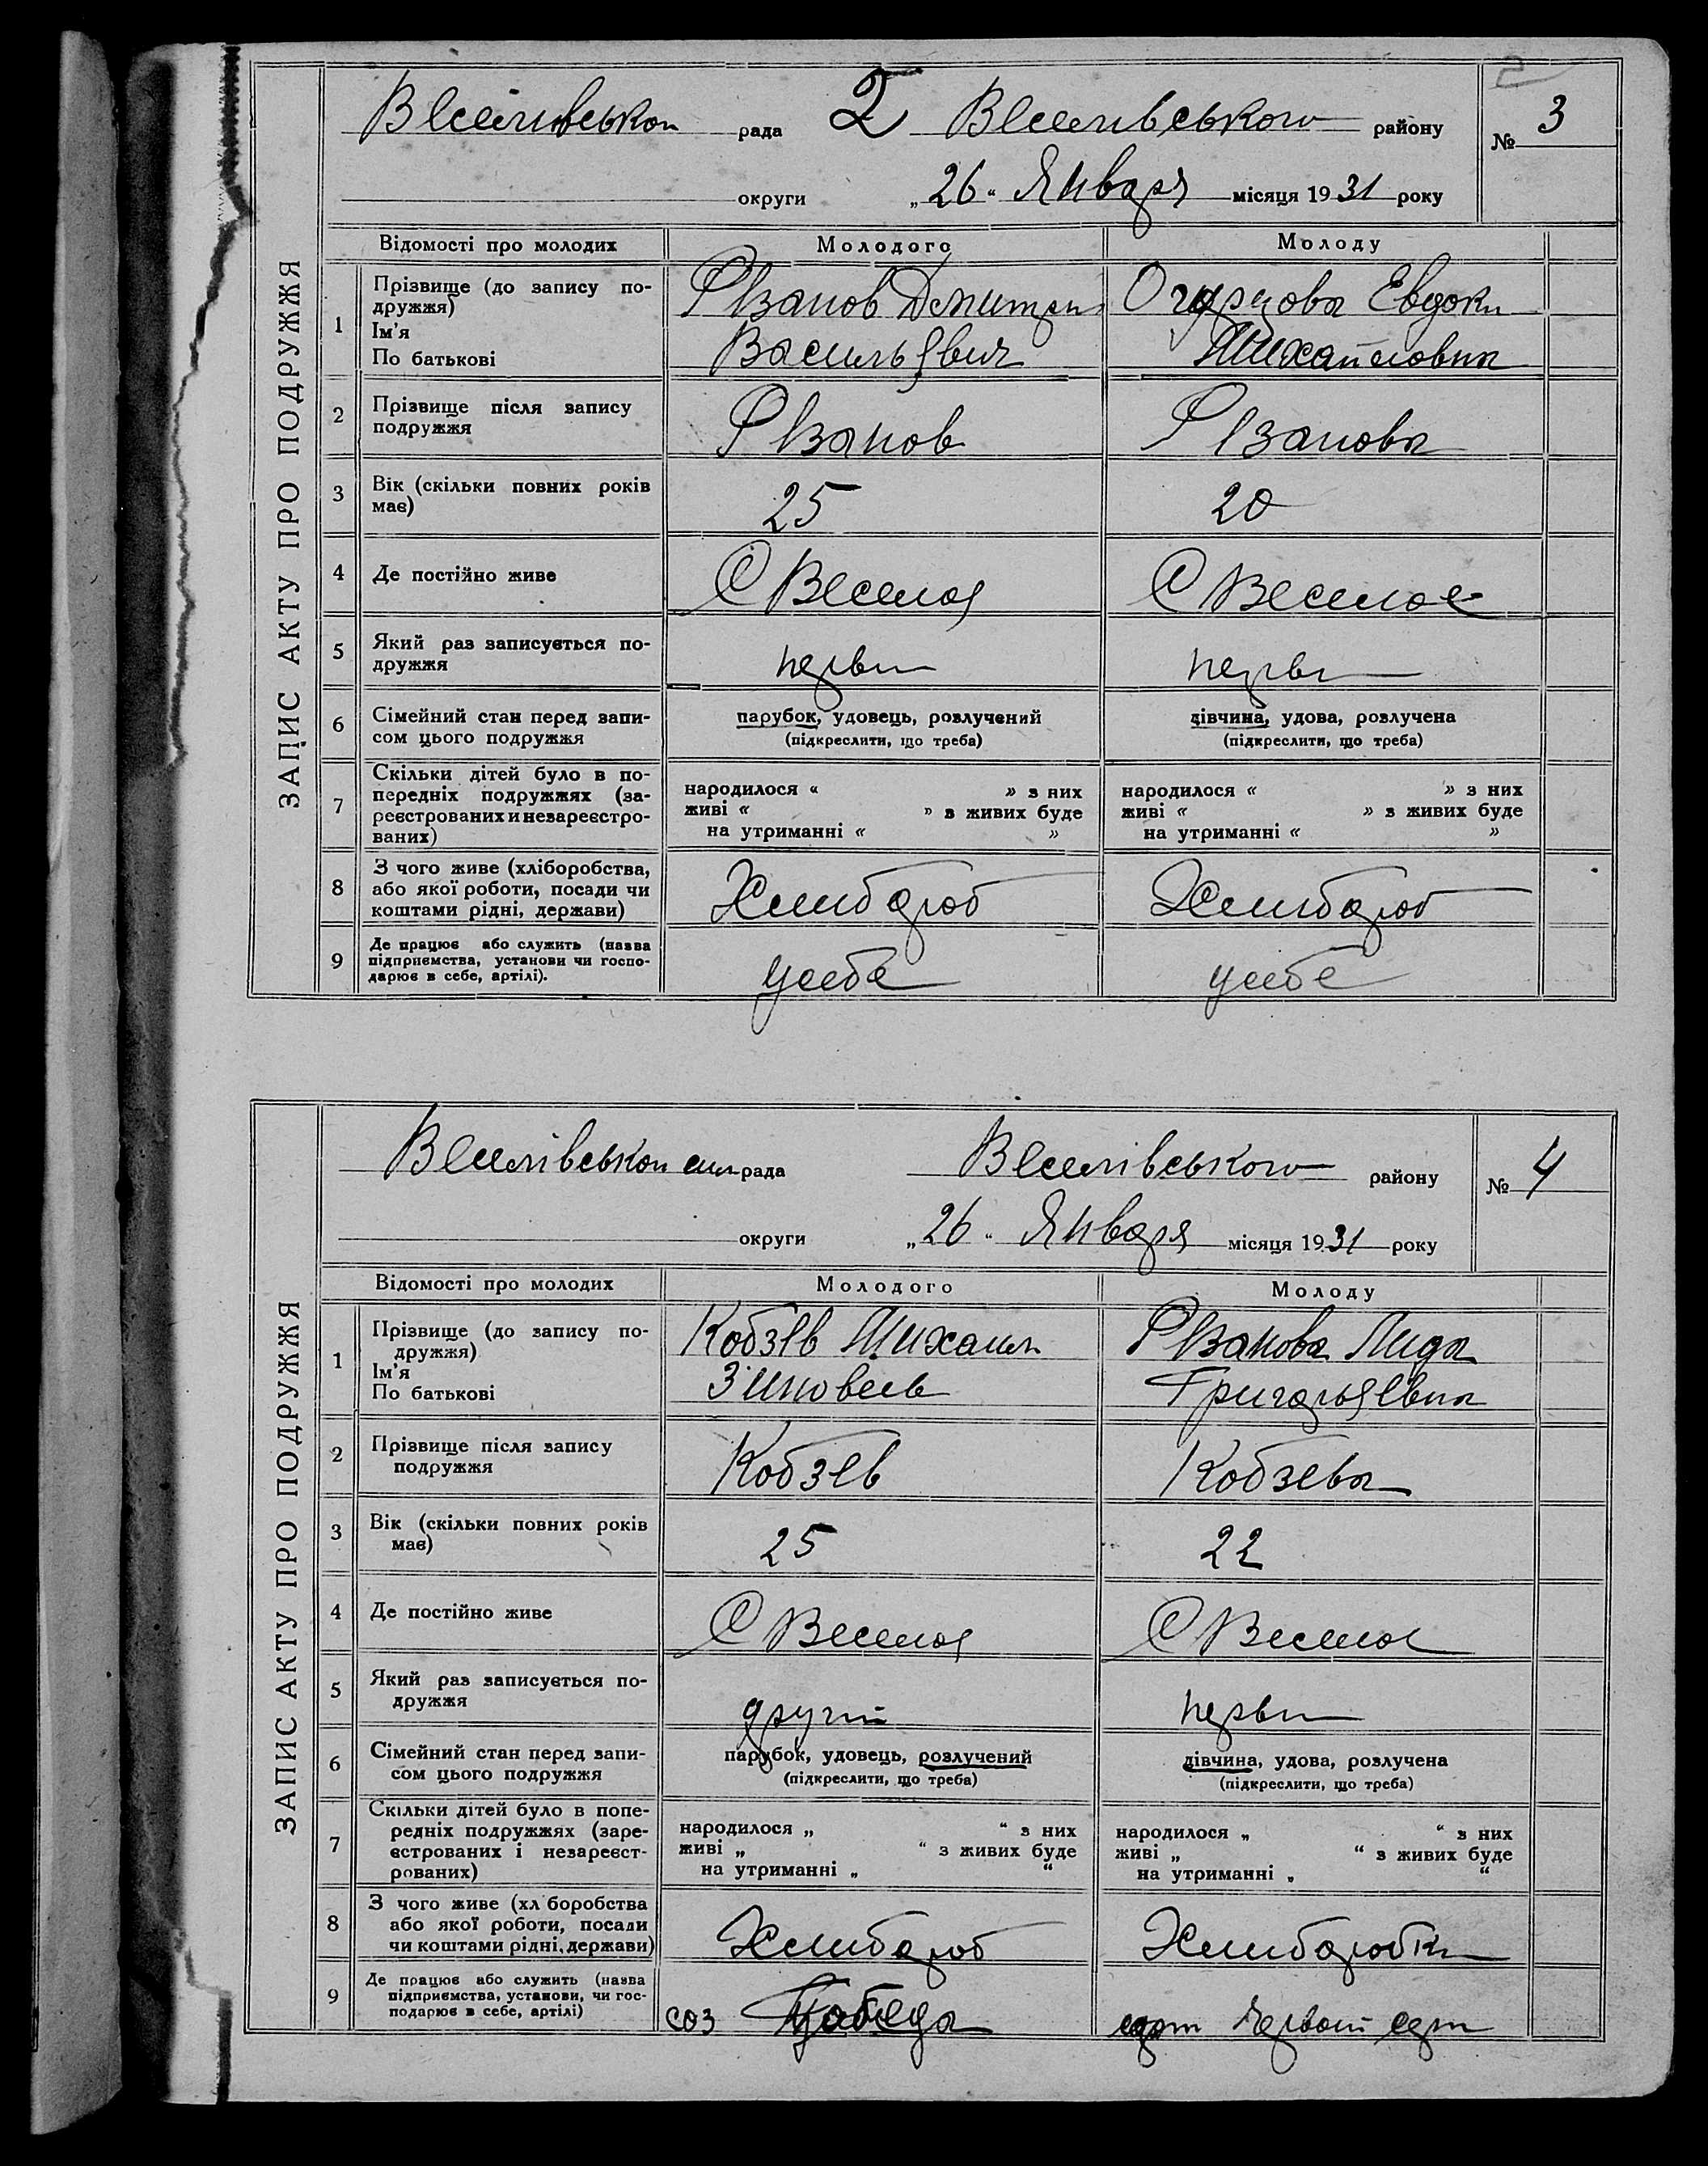 2
Веселівської рада 2 Веселівського району № 3
округи „26“ Января місяця 1931 року
ЗАПИС АКТУ ПРО ПОДРУЖЖЯ
Відомості про молодих Молодого Молоду
1 Прізвище (до запису по-
дружжя)
Ім'я
По батькові
Рванов Дмитри
Васильевич
Евдоки
Михайловна
2 Прізвище після запису
подружжя
Рванов Рванова
3 Вік (скільки повних років
має)
25 20
4 Де постійно живе С Веселоя С Веселое
5 Який раз записується по-
дружжя
первы первы
6 Сімейний стан перед запи-
сом цього подружжя
парубок, удовець, розлучений
(підкреслити, що треба)
дівчина, удова, розлучена
(підкреслити, що треба)
7 Скільки дітей було в по-
передніх подружжях (за-
реєстрованих и незареєстро-
ваних)
народилося « » з них
живі « » з живих буде
на утриманні « »
народилося « » з них
живі « » з живих буде
на утриманні « »
8 З чого живе (хліборобства,
або якої роботи, посади чи
коштами рідні, держави)
Хлибороб Хлибороб
9 Де працює або служить (назва
підприємства, установи чи госпо-
дарює в себе, артілі).
усебе усебе
Веселівськои сил рада Веселівського району № 4
округи „26“ Января місяця 1931 року
ЗАПИС АКТУ ПРО ПОДРУЖЖЯ
Відомості про молодих Молодого Молоду
1 Прізвище (до запису по-
дружжя)
Ім'я
По батькові
Кобзев Михаил
Зиновеев
Рванова Лида
Григорьевна
2 Прізвище після запису
подружжя
Кобзев Кобзева
3 Вік (скільки повних років
має)
25 22
4 Де постійно живе С Веселоя С Веселое
5 Який раз записується по-
дружжя
другий первы
6 Сімейний стан перед запи-
сом цього подружжя
парубок, удовець, розлучений
(підкреслити, що треба)
дівчина, удова, розлучена
(підкреслити, що треба)
7 Скільки дітей було в попе-
редніх подружжях (заре-
єстрованих і незареєст-
рованих)
народилося „ “ з них
живі „ “ з живих буде
на утриманні „ “
народилося „ “ з них
живі „ “ з живих буде
на утриманні „ “
8 З чого живе (хл боробства
або якої роботи, посади
чи коштами рідні, держави)
Хлибороб Хлиборобка
9 Де працює або служить (назва
підприємства, установи, чи гос-
подарює в себе, артілі)
соз Победа